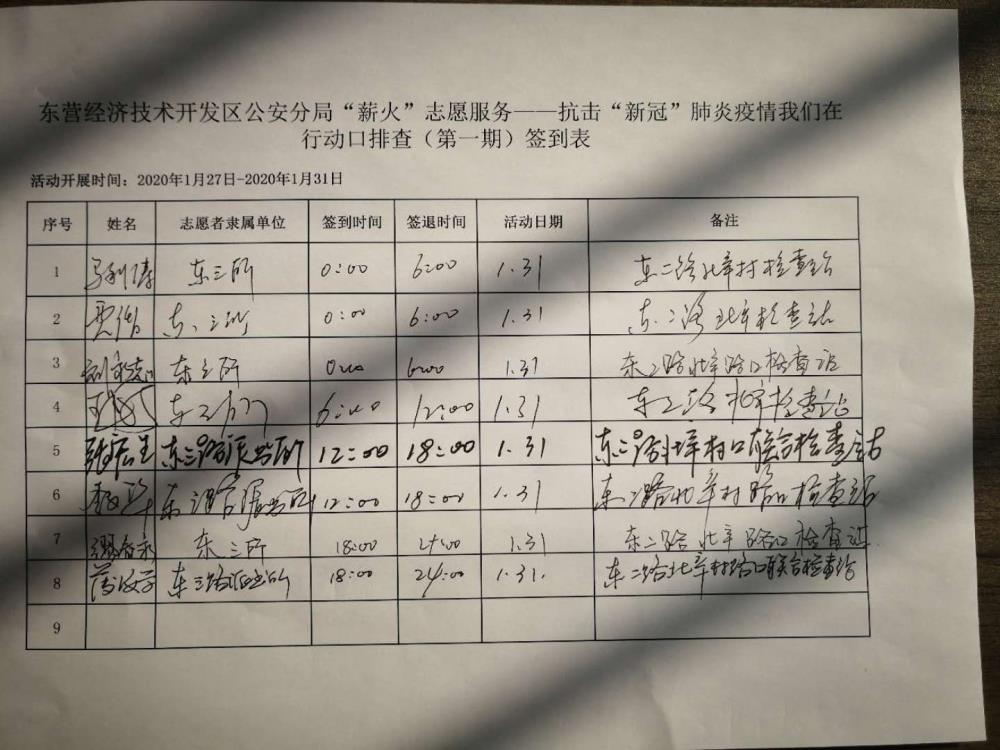 东营经济技术开发区公安分局“薪火”志愿服务——抗击“新冠”肺炎疫情我们在
行动口排查（第一期）签到表
活动开展时间：2020年1月27日-2020年1月31日
序号 姓名 志愿者隶属单位 签到时间 签退时间 活动日期 备注
1 东三所 0:00 6:00 1.31 东二路北辛村检查站
2 东三所 0:00 6:00 1.31 东二路北辛检查站
3 东三所 0:00 6:00 1.31 东二路北辛路口检查站
4 6:00 12:00 1.31 东二路北辛检查站
5 东三路派出所 12:00 18:00 1.31 村口联合检查站
6 东三路派出所 12:00 18:00 1.31 东二路北辛村路口检查站
7 东三所 18:00 24:00 1.31 东二路北辛路口检查站
8 东三路派出所 18:00 24:00 1.31. 东二路北辛村路口联合检查站
9